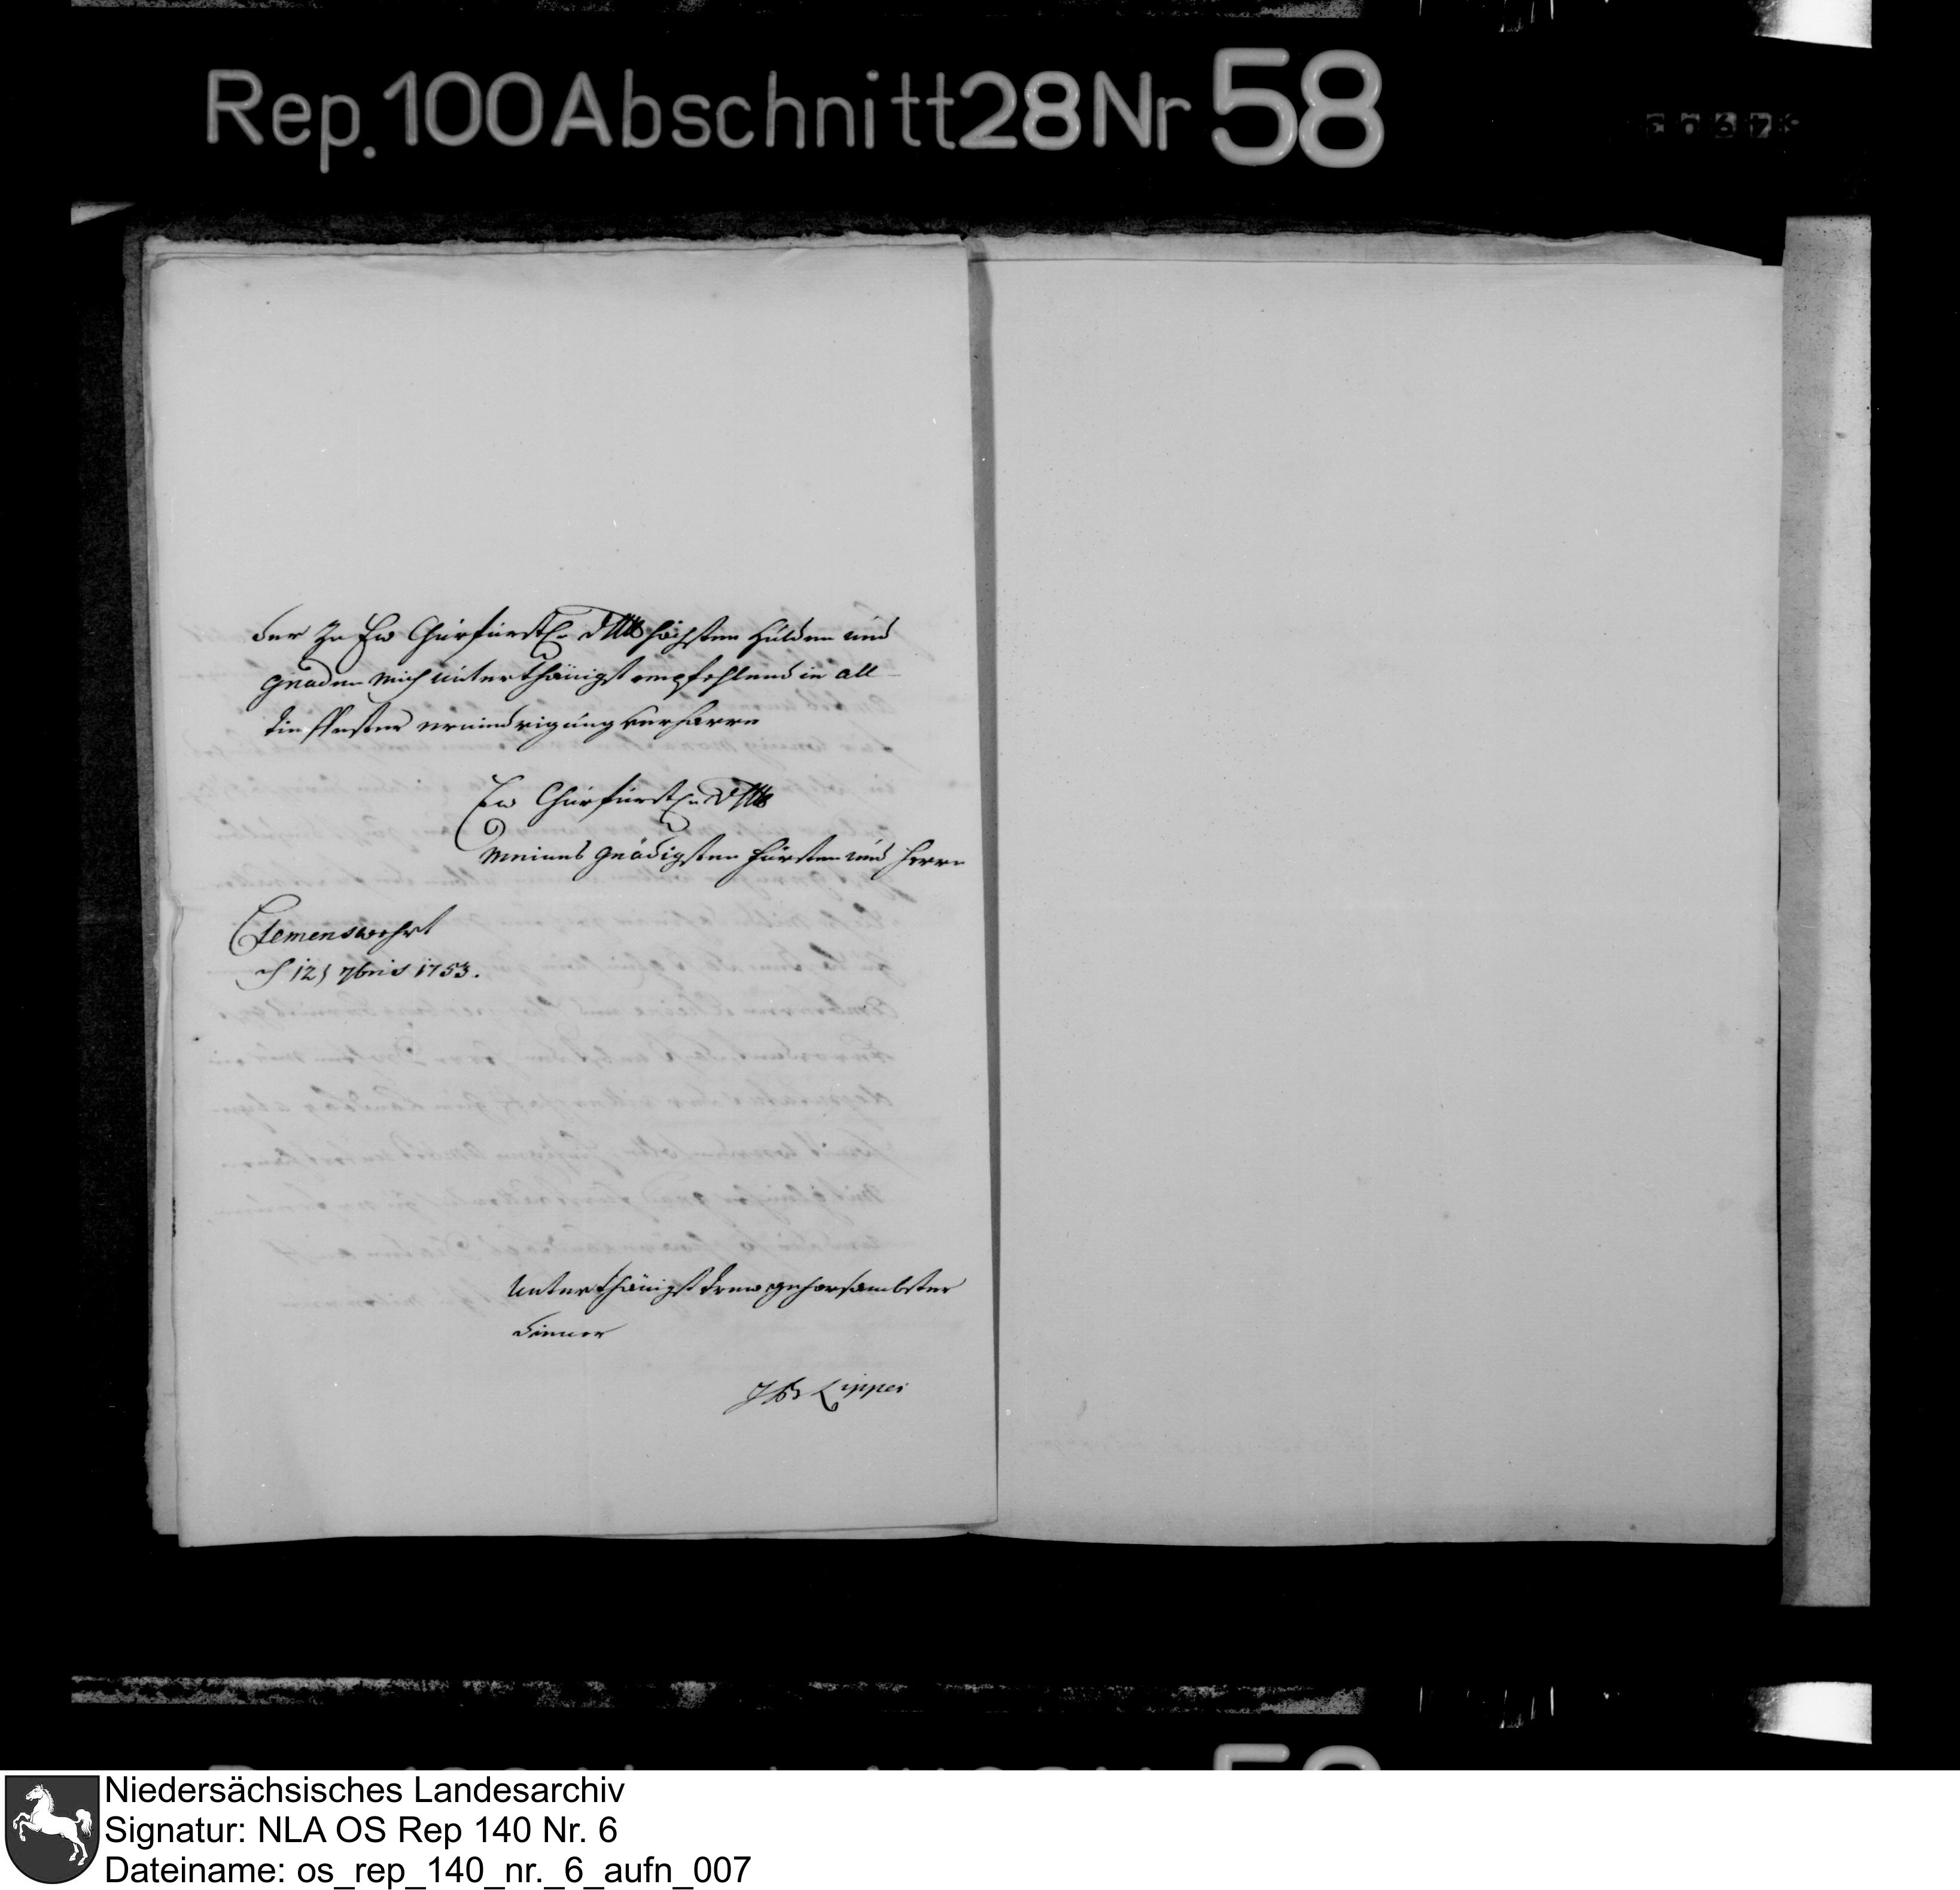 Rep. 100 Abschnitt 28 Nr 58
der zu Ew Churfürstl. Dhlt höchsten Hulden und
gnaden mich unterthänigst empfehlend in all
tieffester erniedrigung verharre
Ew Churfürstl. Dhlt
Meines gnädigsten Fürsten und Herrn
Clemenswehrt
12 7bris 1753.
Unterthänigst trew gehorsambster
diener
Lipper
Niedersächsisches Landesarchiv
Signatur: NLA OS Rep 140 Nr. 6
Dateiname: os_rep_140_nr._6_aufn_007